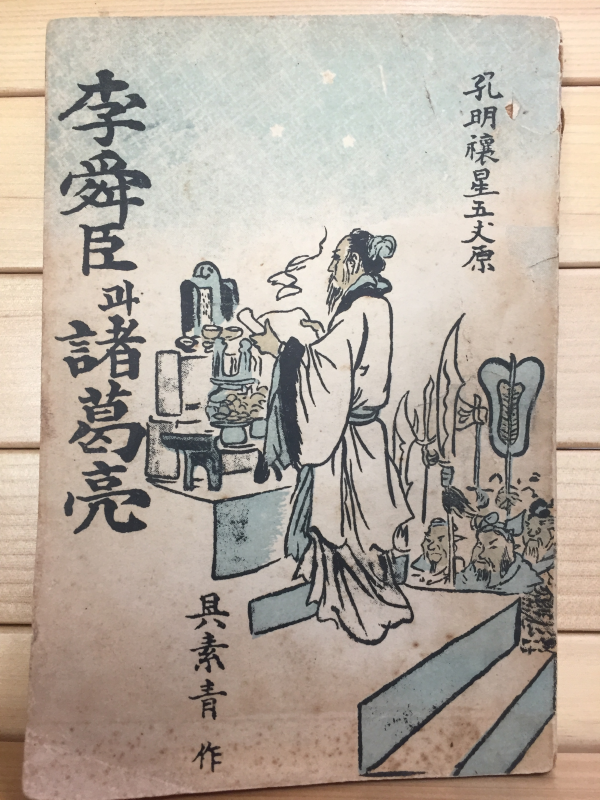 孔明禳星五丈原
李舜臣과諸葛亮
具素青 作